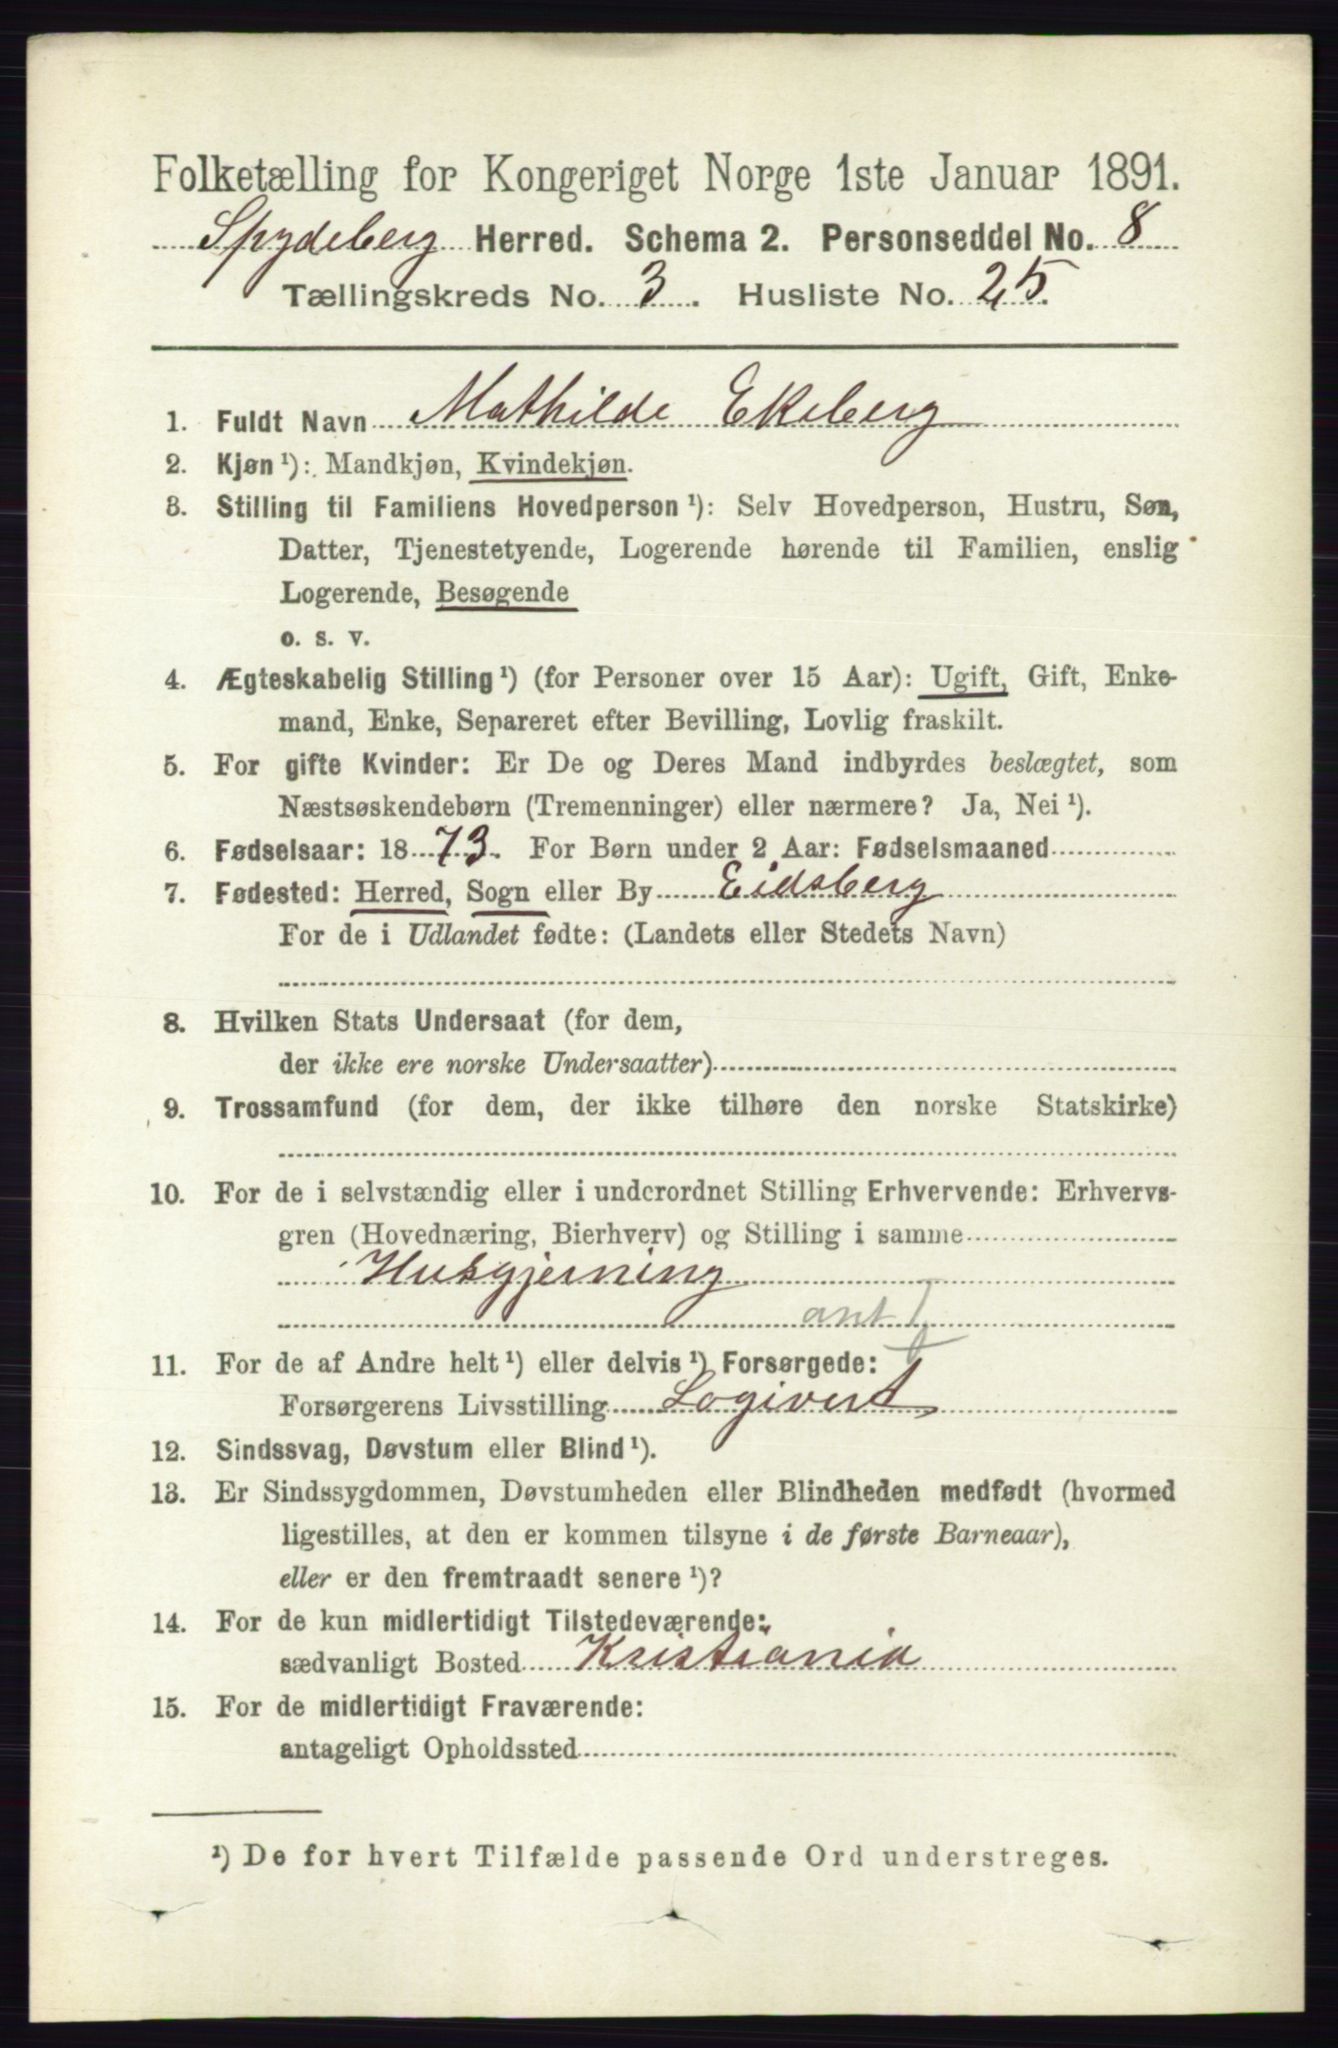 Folketælling for Kongeriget Norge 1ste Januar 1891.
Spydeberg Herred. Schema 2. Personseddel No. 8
Tællingskreds No. 3. Husliste No. 25.
1. Fuldt Navn Mathilde Ekeberg
2. Kjøn¹): Mandkjøn, Kvindekjøn.
3. Stilling til Familiens Hovedperson¹): Selv Hovedperson, Hustru, Søn,
Datter, Tjenestetyende, Logerende hørende til Familien, enslig
Logerende, Besøgende
o. s. v.
4. Ægteskabelig Stilling¹) (for Personer over 15 Aar): Ugift, Gift, Enke-
mand, Enke, Separeret efter Bevilling, Lovlig fraskilt.
5. For gifte Kvinder: Er De og Deres Mand indbyrdes beslægtet, som
Næstsøskendebørn (Tremenninger) eller nærmere? Ja, Nei¹).
6. Fødselsaar: 1873. For Børn under 2 Aar: Fødselsmaaned
7. Fødested: Herred, Sogn eller By Eidsberg
For de i Udlandet fødte: (Landets eller Stedets Navn)
8. Hvilken Stats Undersaat (for dem,
der ikke ere norske Undersaatter)
9. Trossamfund (for dem, der ikke tilhøre den norske Statskirke)
10. For de i selvstændig eller i underordnet Stilling Erhvervende: Erhvervs-
gren (Hovednæring, Bierhverv) og Stilling i samme
Husgjerning
ant
11. For de af Andre helt¹) eller delvis¹) Forsørgede:
Forsørgerens Livsstilling Logivert
12. Sindssvag, Døvstum eller Blind¹).
13. Er Sindssygdommen, Døvstumheden eller Blindheden medfødt (hvormed
ligestilles, at den er kommen tilsyne i de første Barneaar),
eller er den fremtraadt senere¹)?
14. For de kun midlertidigt Tilstedeværende:
sædvanligt Bosted Kristiania
15. For de midlertidigt Fraværende:
antageligt Opholdssted
¹) De for hvert Tilfælde passende Ord understreges.